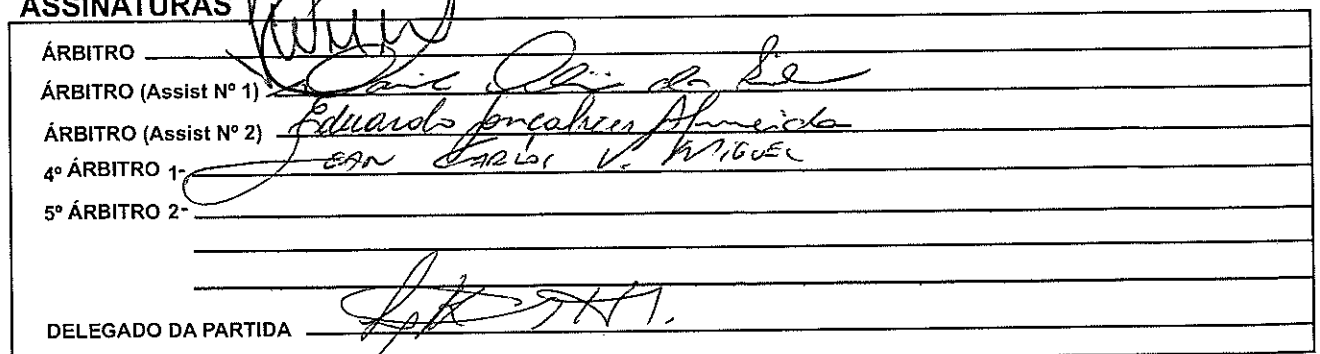 ASSINATURAS
ÁRBITRO
ÁRBITRO (Assist Nº 1) da
ÁRBITRO (Assist Nº 2) Eduardo Gonçalves Almeida
4º ÁRBITRO 1- JEAN CARLOS V. MIGUEL
5º ÁRBITRO 2-
DELEGADO DA PARTIDA